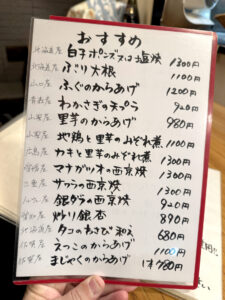 おすすめ
北海道産 白子ポンズ又は塩焼 1300円
北海道産 ぶり大根 1100円
山口産 ふぐのからあげ 1200円
青森産 わかさぎの天ぷら 920円
山形産 里芋のからあげ 980円
山形産 地鶏と里芋のみぞれ煮 1100円
広島産 カキと里芋のみぞれ煮 1300円
マナガツオの西京焼 1300円
三重産 サワラの西京焼 1300円
ノルウェー産 銀ダラの西京焼 920円
愛知産 炒り銀杏 890円
北海道産 タコのわさび和え 680円
佐賀産 えつこのからあげ 1100円
佐賀産 まじゃくのからあげ 1本780円